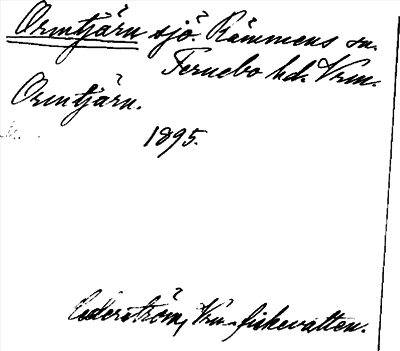 Ormtjärn sjö. Rämmens sn.
Fernebo hd. Vrm.
Ormtjärn.
1895.
Cederström, Vrm. fiskevatten.